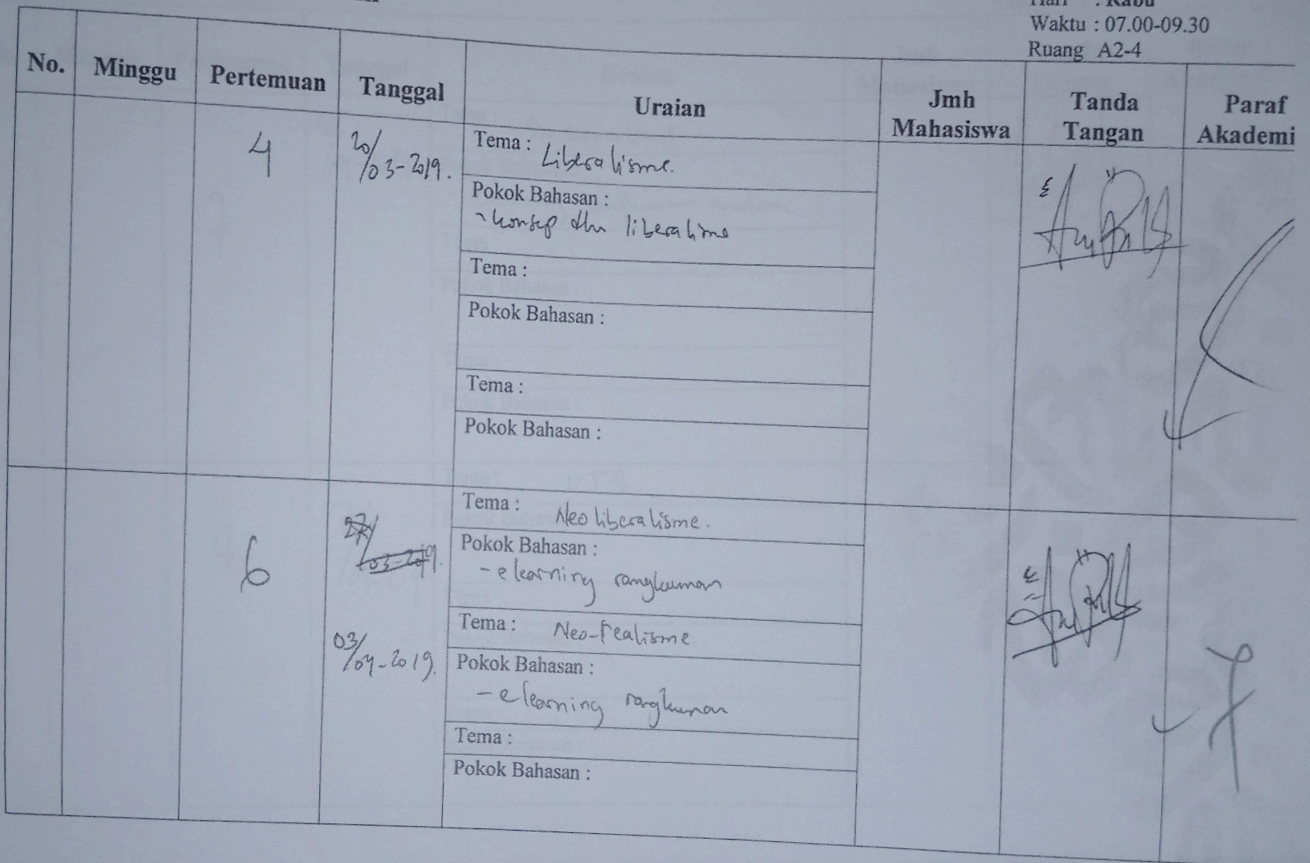 Hari : Rabu
Waktu : 07.00-09.30
Ruang A2-4
No. Minggu Pertemuan Tanggal Uraian Jmh Mahasiswa Tanda Tangan Paraf Akademi
4 20/03-2019. Tema : Liberalisme.
Pokok Bahasan :
- konsep liberalisme
Tema :
Pokok Bahasan :
Tema :
Pokok Bahasan :
6 27/03-2019. Tema : Neo liberalisme.
Pokok Bahasan :
- elearning rangkuman
03/04-2019. Tema : Neo-Realisme
Pokok Bahasan :
- elearning rangkuman
Tema :
Pokok Bahasan :